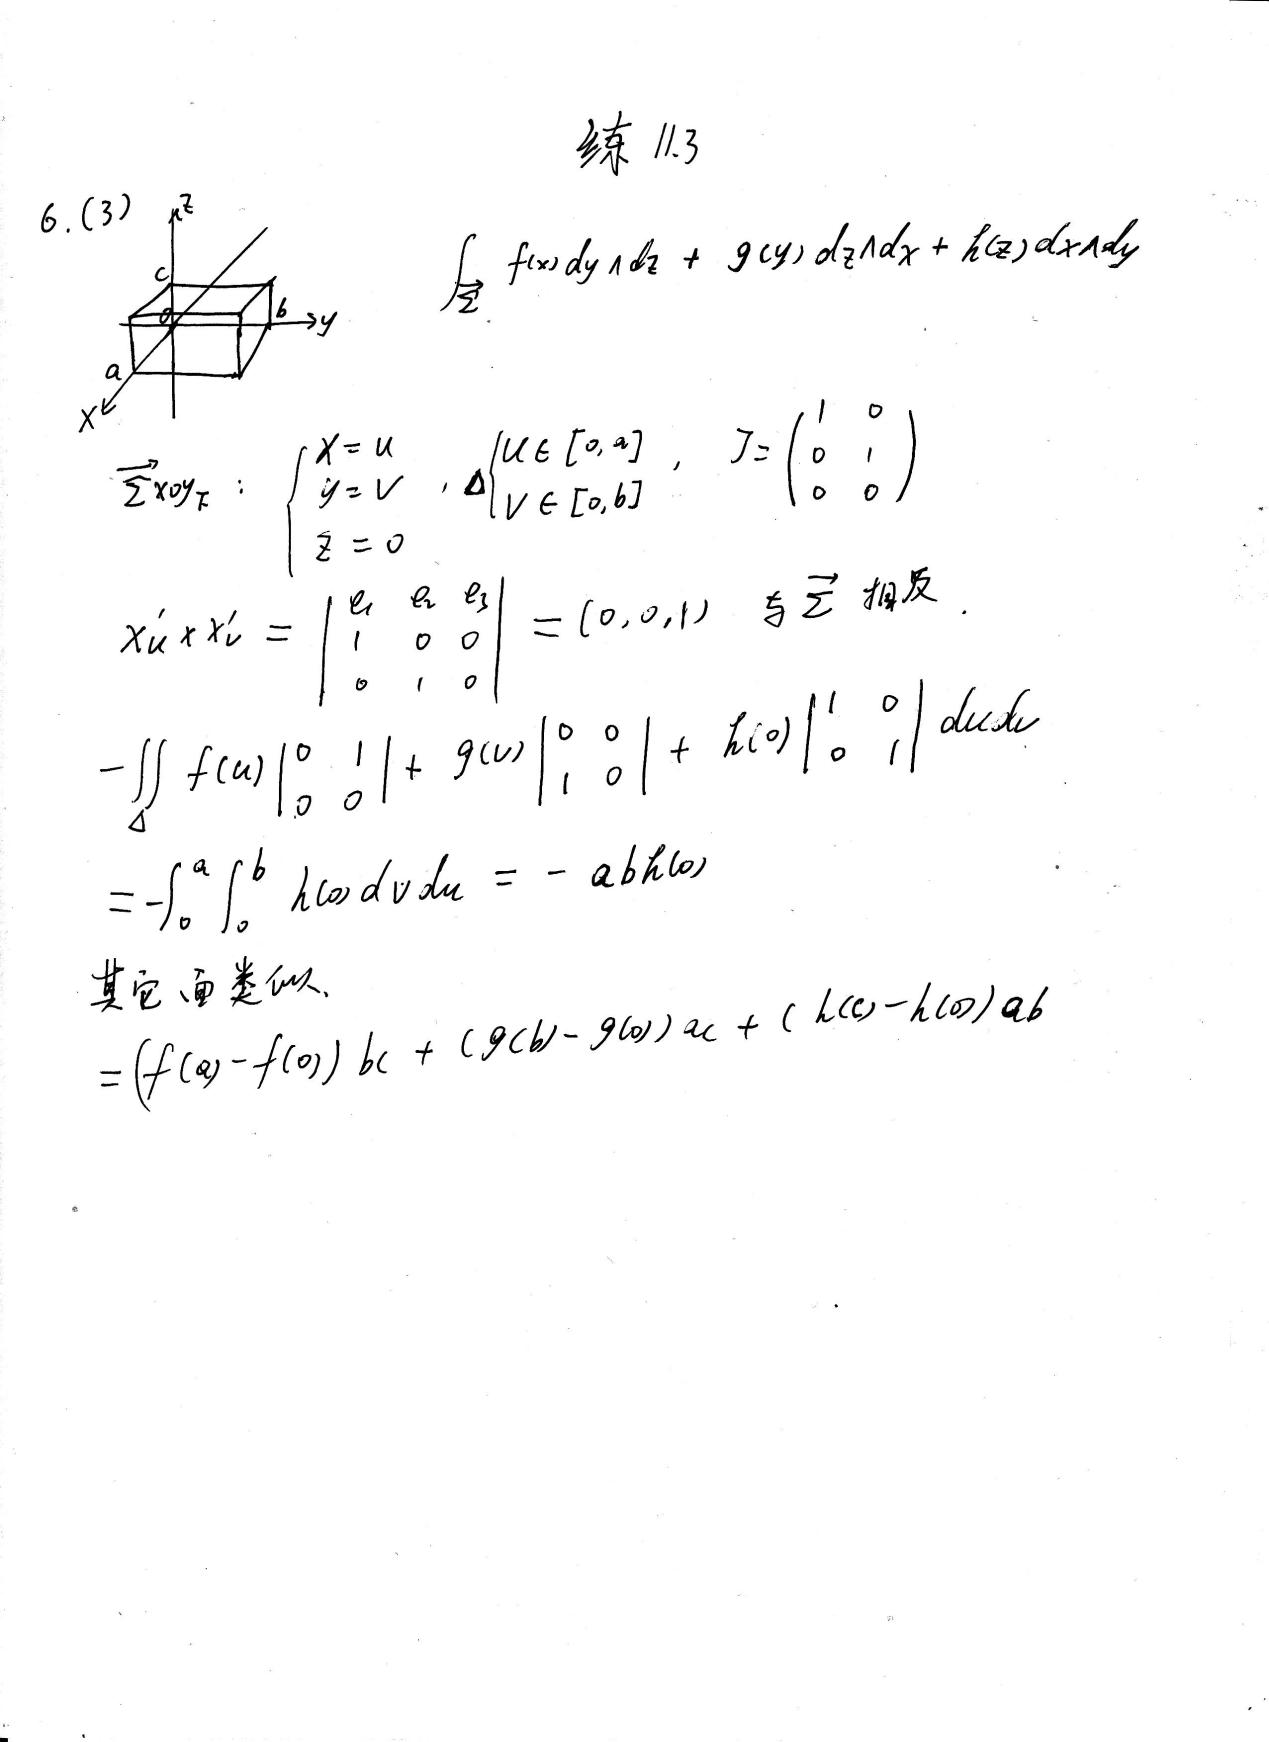 练 11.3
6.(3)
z
c
0
b
y
a
x
∫_Σ⃗ f(x)dy∧dz + g(y)dz∧dx + h(z)dx∧dy
Σ⃗xoy下 : { x=u y=v z=0 , Δ{ u∈[0,a] v∈[0,b] , J= ( 1 0 0 1 0 0 )
x'u × x'v = | e1 e2 e3 1 0 0 0 1 0 | = (0,0,1) 与Σ⃗相反.
-∬_Δ f(u) | 0 1 0 0 | + g(v) | 0 0 1 0 | + h(0) | 1 0 0 1 | dudv
= -∫_0^a ∫_0^b h(0)dvdu = -abh(0)
其它面类似.
= (f(a)-f(0)) bc + (g(b)-g(0)) ac + (h(c)-h(0)) ab